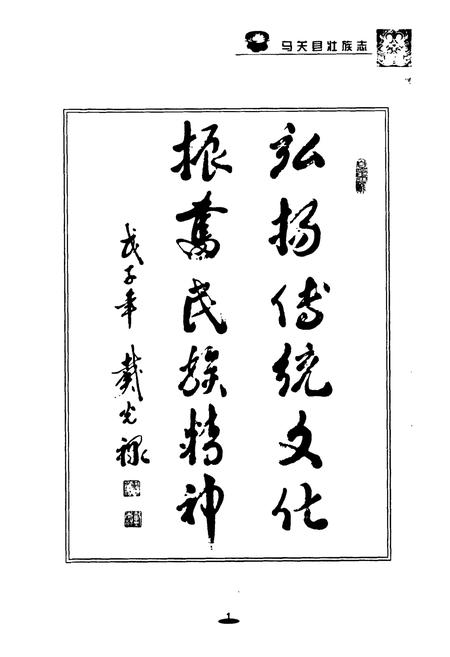 马关县壮族志
弘扬傳统文化
振奮民族精神
戊子年 戴光禄
1